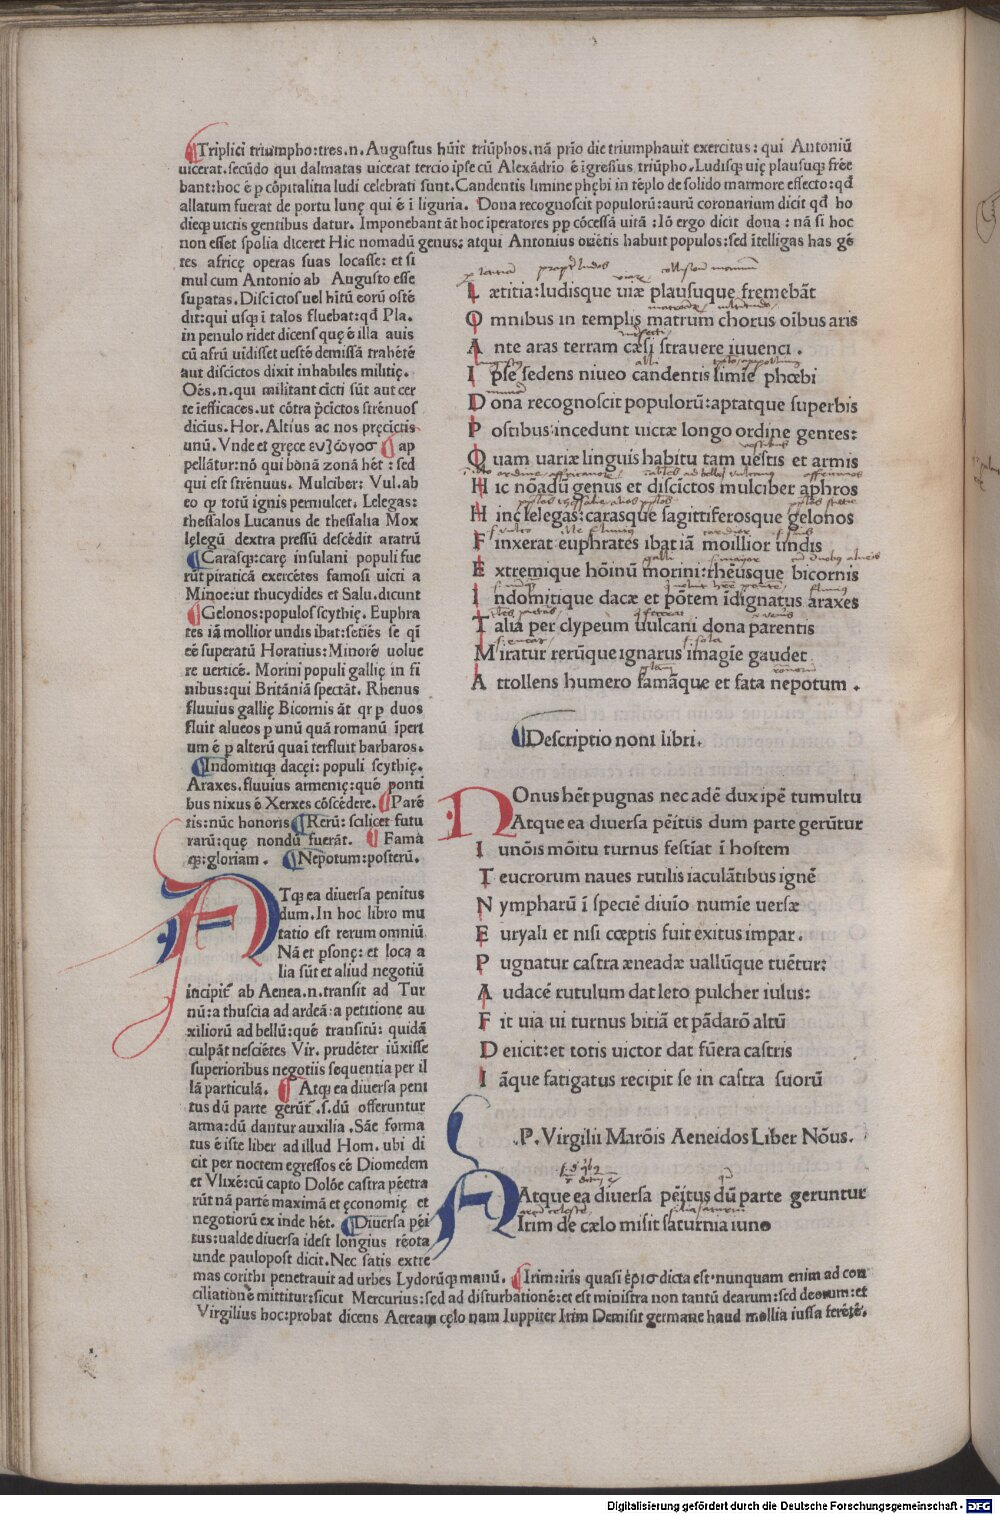 Triplici triumpho:tres.n. Augustus hūit triūphos.nā prīo die triumphauit exercitus: qui Antoniū
uicerat.secūdo qui dalmatas uicerat tercio ipse cū Alexādrio ē īgressus triūpho.Ludisq; uię plausuq; free
bant:hoc ē p cōpitalitia ludi celebrati sunt.Candentis limine phębi in tēplo de solido marmore effecto:qđ
allatum fuerat de portu lunę qui ē ī liguria. Dona recognoscit populorū:aurū coronarium dicit qđ ho
dieq; uictis gentibus datur. Imponebant āt hoc īperatores pp cōcessā uitā :Iō ergo dicit dona : nā si hoc
non esset spolia diceret Hic nomadū genus: atqui Antonius oriētis habuit populos:sed ītelligas has gē
tes africę operas suas locasse: et si
mul cum Antonio ab Augusto esse
supatas.Discīctos uel hītū eorū ostē
dit:qui usq; ī talos fluebat:qđ Pla.
in penulo ridet dicens quę ē illa auis
cū afrū uidisset uestē demissā trahētē
aut discīctos dixit inhabiles militię.
Oēs.n.qui militant cīcti sūt aut cer
te īefficaces.ut cōtra p̄cīctos strēnuos
dicius.Hor.Altius ac nos pręcīctis
unū.Vnde et gręce ευζωνοσ ap
pellātur:nō qui bonā zonā hēt : sed
qui est strēnuus. Mulciber: Vul.ab
eo qp totū ignis permulcet. Lelegas:
thessalos Lucanus de thessalia Mox
lęlegū dextra pressū descēdit aratrū
Carasq;:carę insulani populi fue
rūt piraticā exercētes famosi uicti a
Minoe:ut thucydides et Salu.dicunt
Gelonos:populos scythię. Euphra
tes iā mollior undis ibat:sētiēs se qī
eē superatū Horatius:Minorē uolue
re uerticē. Morini populi gallię in fi
nibus:qui Britāniā spectāt. Rhenus
fluuius gallię Bicornis āt qr p duos
fluit alueos p unū quā romanū īperi
um ē p alterū quai terfluit barbaros.
Indomitiq; dacęi: populi scythię.
Araxes.fluuius armenię:quē ponti
bus nixus ē Xerxes cōscēdere. Parē
tis:nūc honoris Rerū: scilicet futu
rarū:quę nondū fuerāt. Fama
q;:gloriam. Nepotum:posterū.
ATq; ea diuersa penitus
dum.In hoc libro mu
tatio est rerum omniū
Nā et psonę: et loca a
lia sūt et aliud negotiū
incipit ab Aenea.n.transit ad Tur
nū:a thuscia ad ardeā:a petitione au
xiliorū ad bellū:quē transitū: quidā
culpāt nesciētes Vir. prudēter iūxisse
superioribus negotiis sequentia per il
lā particulā. Atq; ea diuersa peni
tus dū parte gerūt.s.dū offeruntur
arma:dū dantur auxilia.Sāe forma
tus ē iste liber ad illud Hom. ubi di
cit per noctem egressos eē Diomedem
et Vlixē:cū capto Dolōe castra pēetra
rūt nā parte maximā et ęconomię et
negotiorū ex inde hēt. Diuersa pēi
tus:ualde diuersa idest longius rēota
unde paulopost dicit.Nec satis extre
mas corithi penetrauit ad urbes Lydorūq; manū. Irim:iris quasi ἐρισ dicta est.nunquam enim ad con
ciliationē mittitur:sicut Mercurius:sed ad disturbationē:et est ministra non tantū dearum:sed deorum:et
Virgilius hoc:probat dicens Aeream cęlo nam Iuppiter Irim Demisit germane haud mollia iussa ferētē.
L ætitia:ludisque uiæ plausuque fremebāt
O mnibus in templis matrum chorus oībus aris
A nte aras terram cæsi strauere iuuenci .
I pse sedens niueo candentis limīe phœbi
D ona recognoscit populorū:aptatque superbis
P ostibus:incedunt uictæ longo ordine gentes:
Q uam uariæ linguis habitu tam uestis et armis
H ic nōadū genus et discīctos mulciber aphros
H inc lelegas:carasque sagittiferosque gelonos
F inxerat:euphrates ibat iā moillior undis
E xtremique hōinū morini:rhēusque bicornis
I ndomitique dacæ et pōtem īdignatus araxes
T alia per clypeum uulcani dona parentis
M iratur rerūque ignarus imagīe gaudet
A ttollens humero famāque et fata nepotum .
Descriptio noni libri.
NOnus hēt pugnas nec adē dux ipē tumultu
Atque ea diuersa pēitus dum parte gerūtur
I unōis mōitu turnus festīat ī hostem
T eucrorum naues rutilis iaculātibus ignē
N ympharū ī speciē diuīo numīe uersæ
E uryali et nisi cœptis fuit exitus impar.
P ugnatur castra æneadæ uallūque tuētur:
A udacē rutulum dat leto pulcher iulus:
F it uia ui turnus bitiā et pādarō altū
D eiicit:et totis uictor dat fūera castris
I āque fatigatus recipit se in castra suorū
.P. Virgilii Marōis Aeneidos Liber Nōus.
AAtque ea diuersa pēitus dū parte geruntur
Irim de cælo misit saturnia iuno
Digitalisierung gefördert durch die Deutsche Forschungsgemeinschaft - DFG